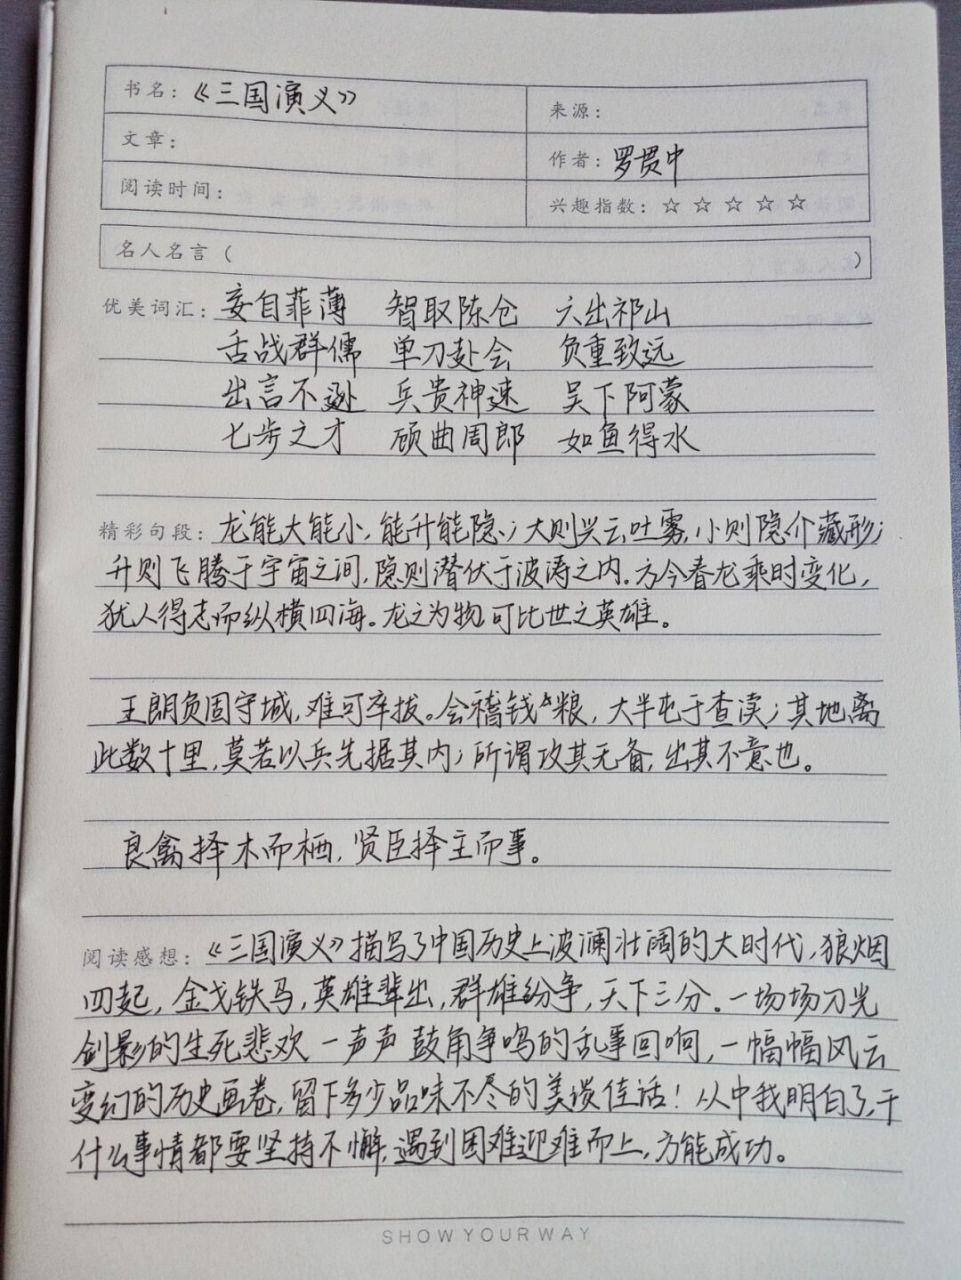 书名：《三国演义》 来源：
文章： 作者：罗贯中
阅读时间： 兴趣指数：☆☆☆☆☆
名人名言（ ）
优美词汇：妄自菲薄 智取陈仓 六出祁山
舌战群儒 单刀赴会 负重致远
出言不逊 兵贵神速 吴下阿蒙
七步之才 顾曲周郎 如鱼得水
精彩句段：龙能大能小，能升能隐；大则兴云吐雾，小则隐介藏形；
升则飞腾于宇宙之间，隐则潜伏于波涛之内。方今春龙乘时变化，
犹人得志而纵横四海。龙之为物，可比世之英雄。
王朗负固守城，难可卒拔。会稽钱粮，大半屯于查渎；其地离
此数十里，莫若以兵先据其内；所谓攻其无备，出其不意也。
良禽择木而栖，贤臣择主而事。
阅读感想：《三国演义》描写了中国历史上波澜壮阔的大时代，狼烟
四起，金戈铁马，英雄辈出，群雄纷争，天下三分。一场场刀光
剑影的生死悲欢一声声鼓角争鸣的乱事回响，一幅幅风云
变幻的历史画卷，留下多少品味不尽的美谈佳话！从中我明白了，干
什么事情都要坚持不懈，遇到困难迎难而上，方能成功。
SHOW YOUR WAY